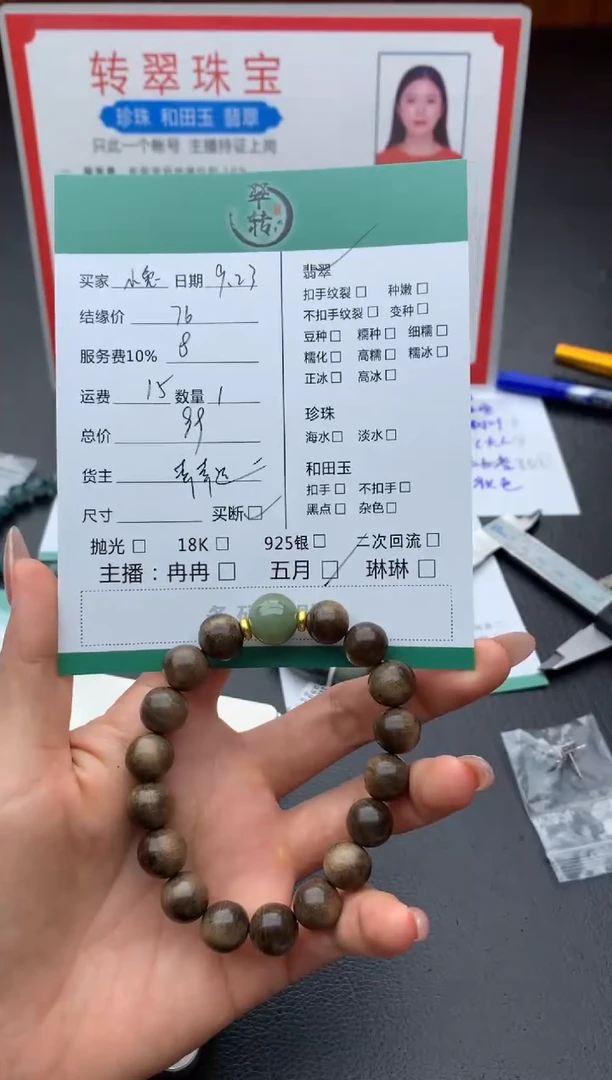 转翠珠宝
珍珠 和田玉 翡翠
只此一个帐号 主播持证上岗
翠转
买家 日期 9.23
结缘价 76
服务费10% 8
运费 15 数量 1
总价 99
货主
尺寸 买断
翡翠
扣手纹裂 种嫩
不扣手纹裂 变种
豆种 糯种 细糯
糯化 高糯 糯冰
正冰 高冰
珍珠
海水 淡水
和田玉
扣手 不扣手
黑点 杂色
抛光 18K 925银 二次回流
主播：冉冉 五月 琳琳